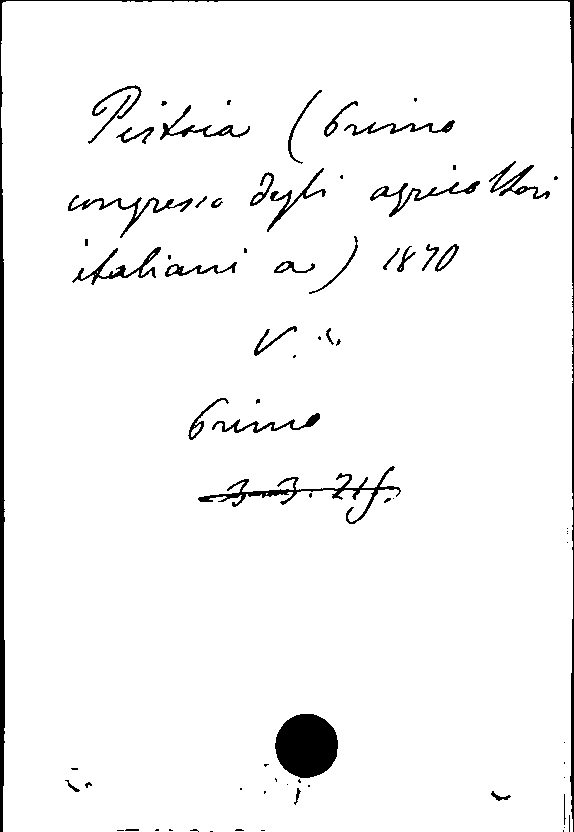 Pistoia (Primo
congresso degli agricoltori
italiani a) 1870
V.
Primo
3-3.21f.